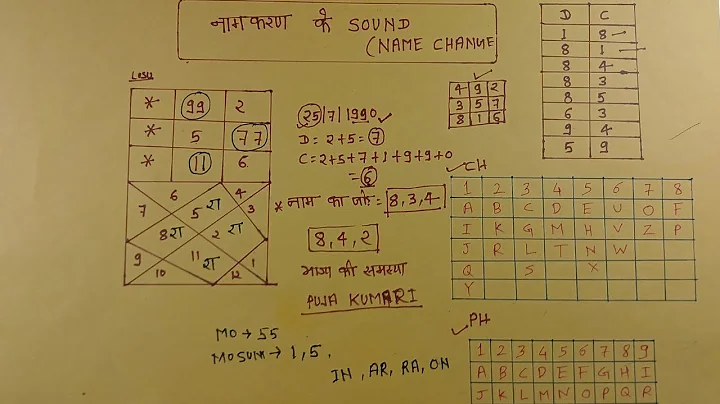 नामकरण के SOUND
(NAME CHANGE
D C
1 8
8 1
8 4
8 3
8 5
6 3
9 4
5 9
LOSU
* 99 2
* 5 77
* 11 6
4 9 2
3 5 7
8 1 6
25/7/1990
D = 2+5 = 7
C = 2+5+7+1+9+9+0
= 6
* नाम का जोड़ = 8,3,4
8,4,2
भाग्य की समस्या
PUJA KUMARI
6 4
7 5 रा 3
8 रा 2 रा
9 11 रा 1
10 12
CH
1 2 3 4 5 6 7 8
A B C D E U O F
I K G M H V Z P
J R L T N W
Q S X
Y
MO → 55
MOSUM → 1,5,
IN, AR, RA, ON
PH
1 2 3 4 5 6 7 8 9
A B C D E F G H I
J K L M N O P Q R